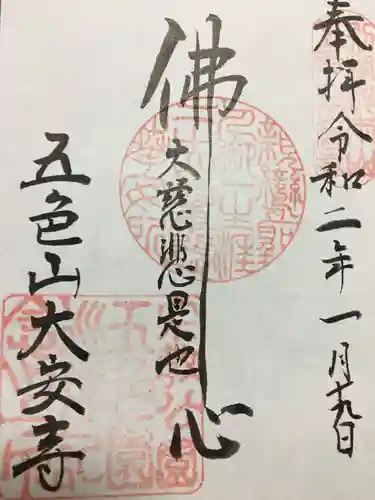 奉拝
令和二年一月十九日
佛心
大慈悲是也
五色山大安寺